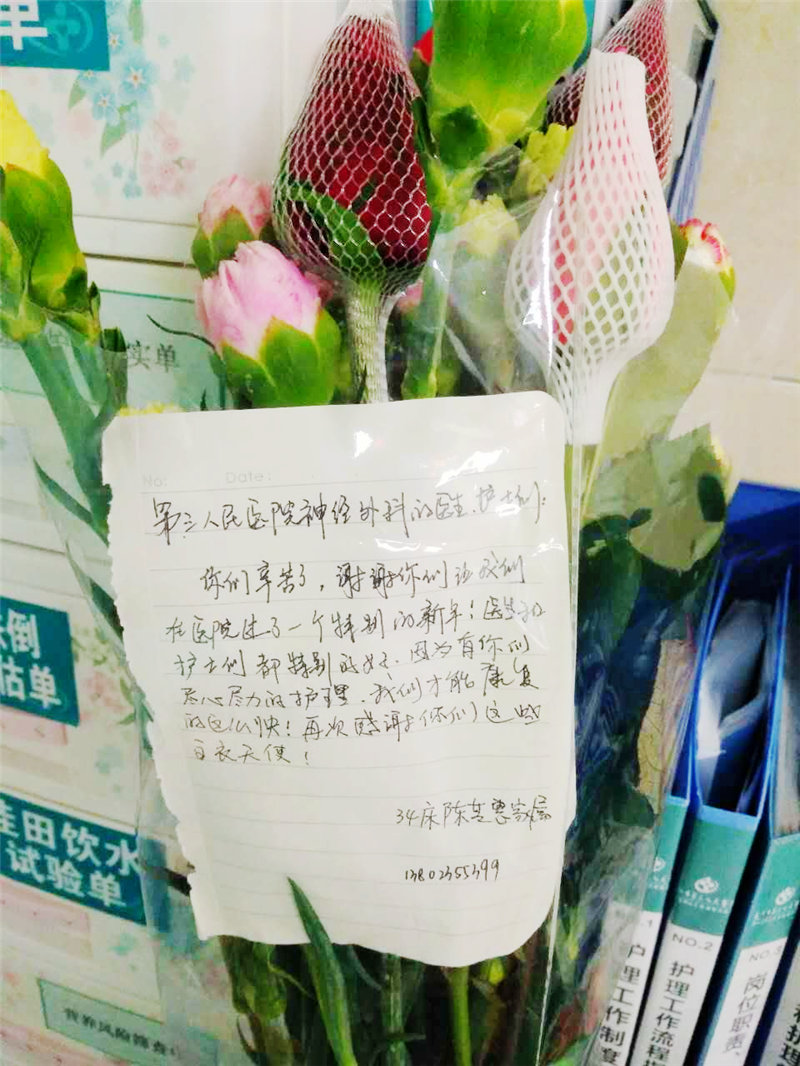 单
实单
No:
Date:
第三人民医院神经外科的医生、护士们:
你们辛苦了,谢谢你们让我们
在医院过了一个特别的新年!医生和
护士们都特别的好.因为有你们
尽心尽力的护理.我们才能康复
的这么快!再次感谢你们这些
白衣天使!
34床陈芝惠家属
13802355399
倒
估单
洼田饮水
试验单
营养风险筛查
护理工作制度
NO.2
护理工作流程
NO.3
岗位职责、